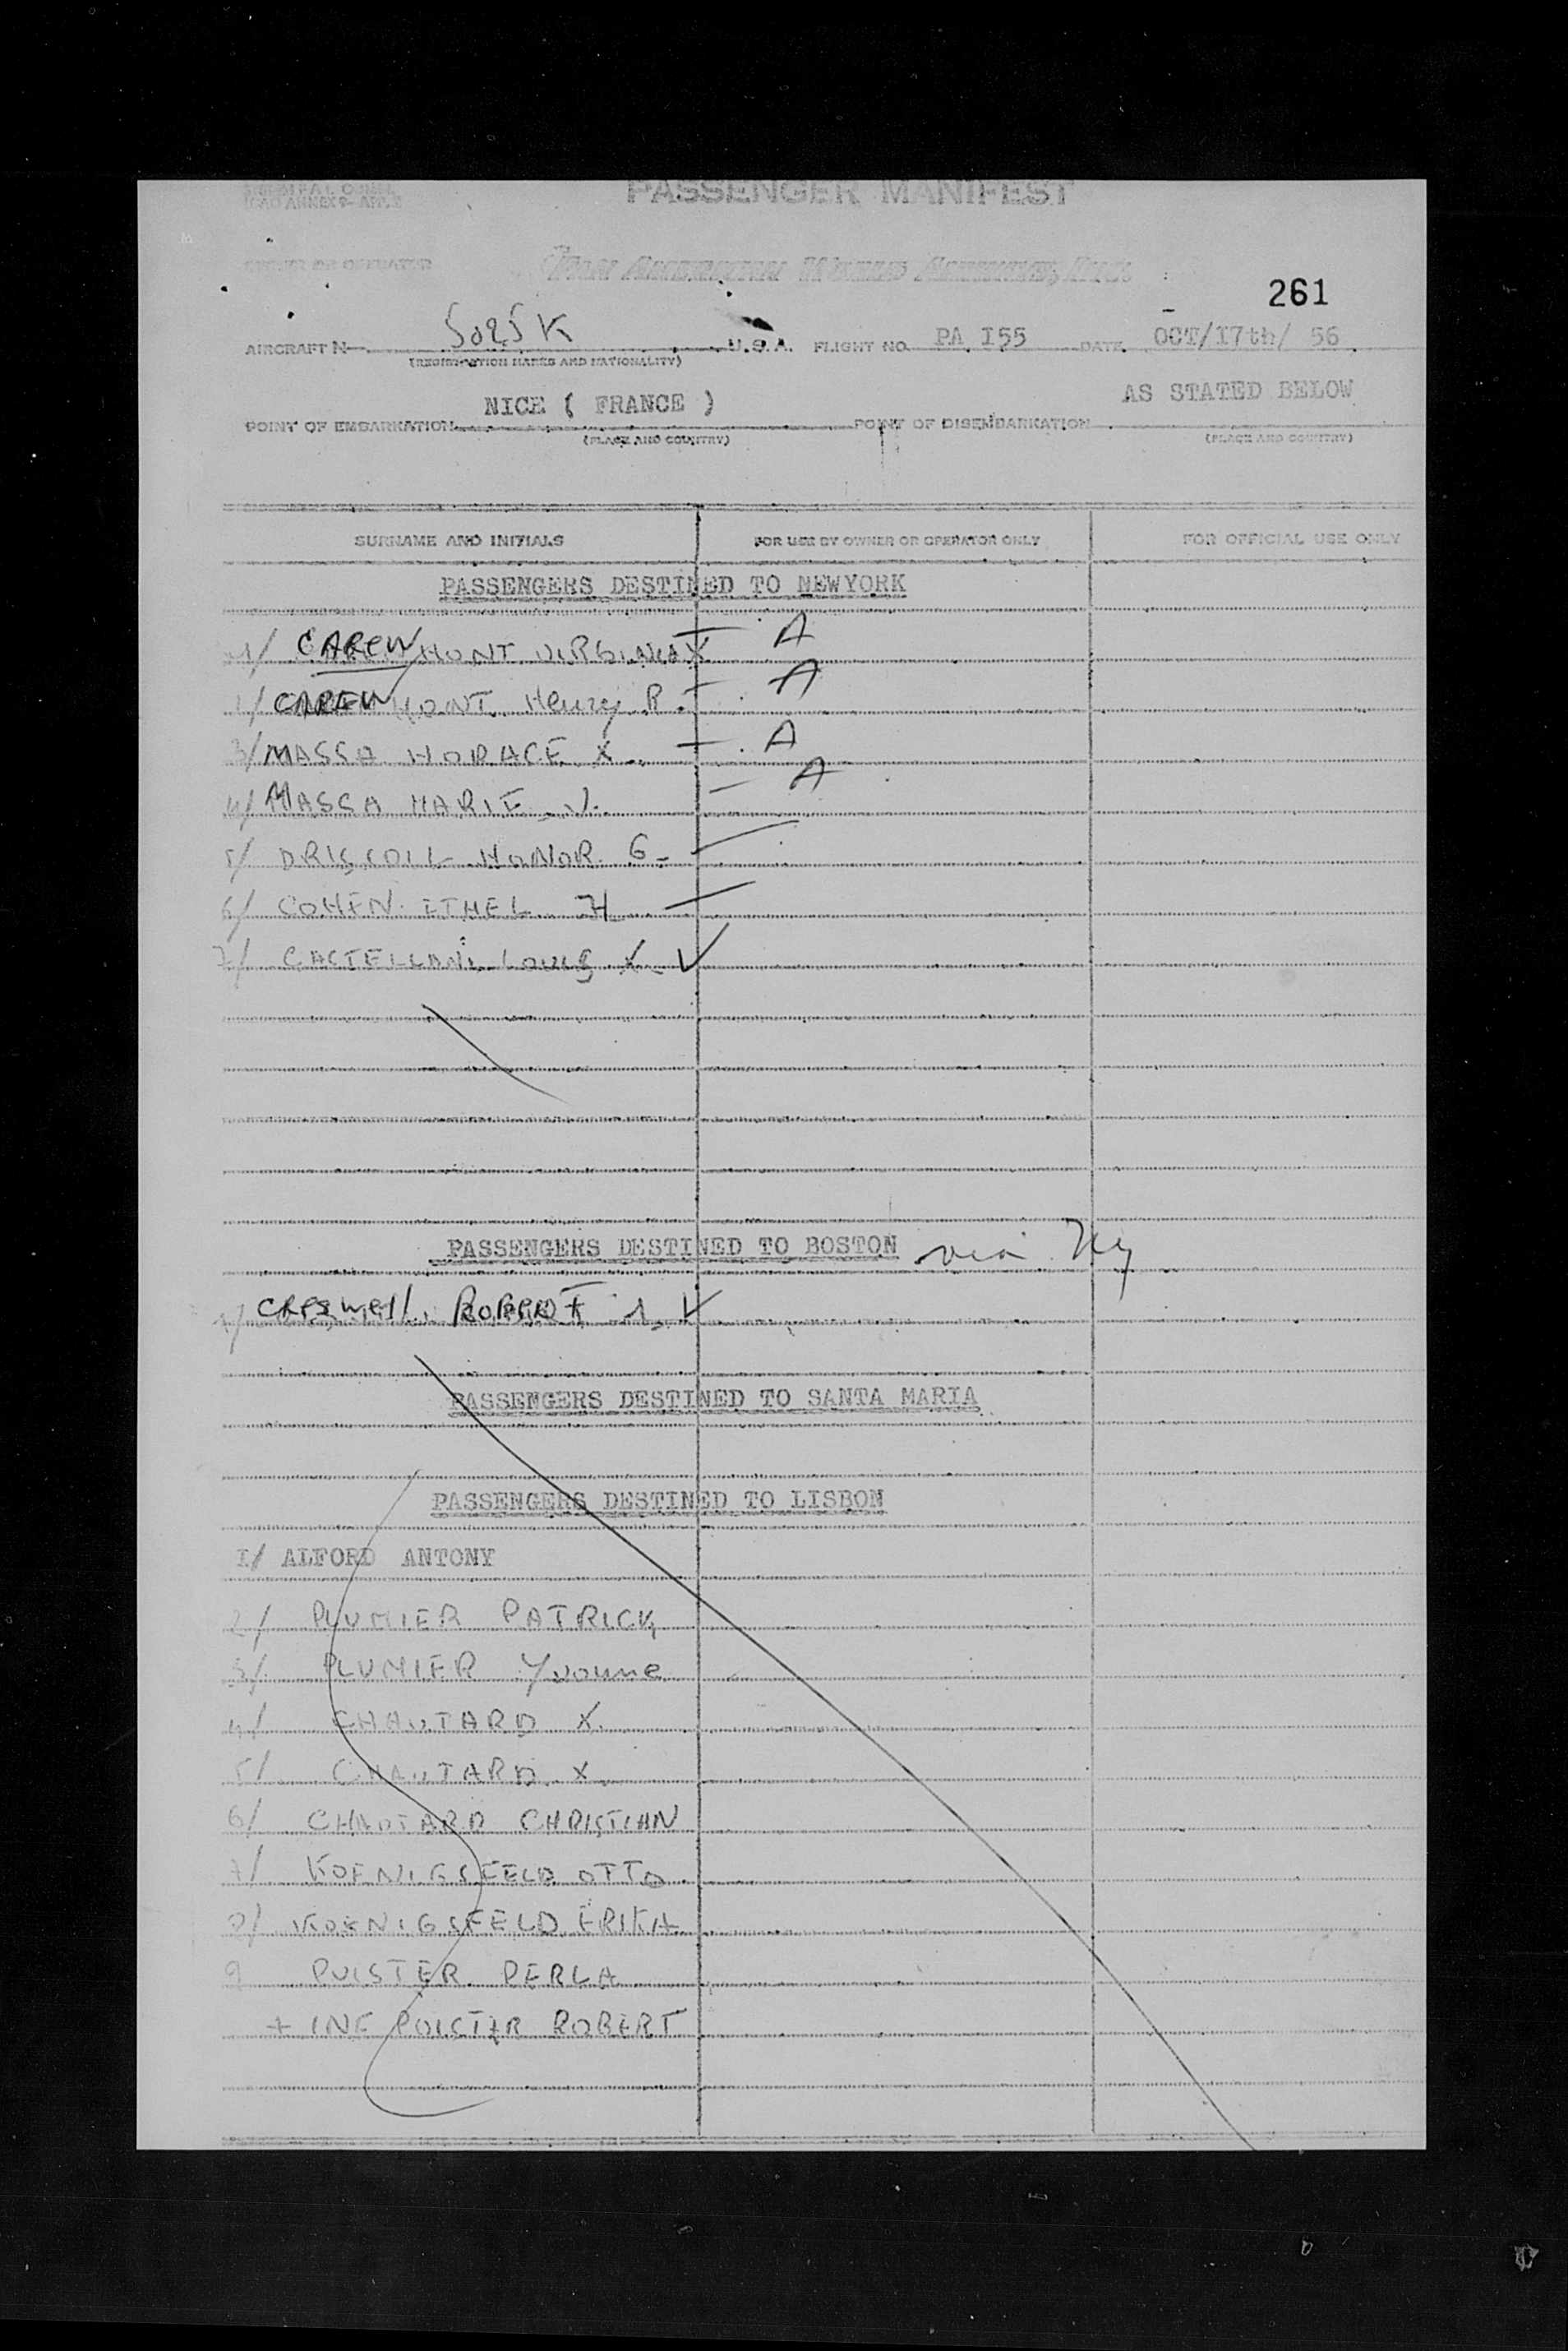 PASSENGER MANIFEST
ICAO ANNEX 9- APP.
OWNER OR OPERATOR
PAN AMERICAN WORLD AIRWAYS, INC.
261
AIRCRAFT N- 5025K U.S.A. FLIGHT NO. PA I55 DATE OCT/I7th/ 56
(REGISTRATION MARKS AND NATIONALITY)
AS STATED BELOW
NICE ( FRANCE )
POINT OF EMBARKATION POINT OF DISEMBARKATION
(PLACE AND COUNTRY) (PLACE AND COUNTRY)
SURNAME AND INITIALS FOR USE BY OWNER OR OPERATOR ONLY FOR OFFICIAL USE ONLY
PASSENGERS DESTINED TO NEWYORK
1/ CAREW HONT VIRGINIA X - A
CAREW HONT Henry R. - A
3/ MASSA HORACE X - A
4/ MASSA MARIE V. - A
5/ DRISCOLL HONOR G -
6/ COHEN ETHEL H -
7/ CASTELLANI Louis X V
PASSENGERS DESTINED TO BOSTON via Ny
1/ CRESWELL ROBERT 1 V
PASSENGERS DESTINED TO SANTA MARIA
PASSENGERS DESTINED TO LISBON
I/ ALFORD ANTONY
2/ PLUMIER PATRICK
3/ PLUMIER Yvonne
4/ CHAUTARD X
5/ CHAUTARD X
6/ CHAUTARD CHRISTIAN
7/ KOENIGSFELD OTTO
8/ KOENIGSFELD ERIKA
9 PUISTER PERLA
+ INF ROBERT